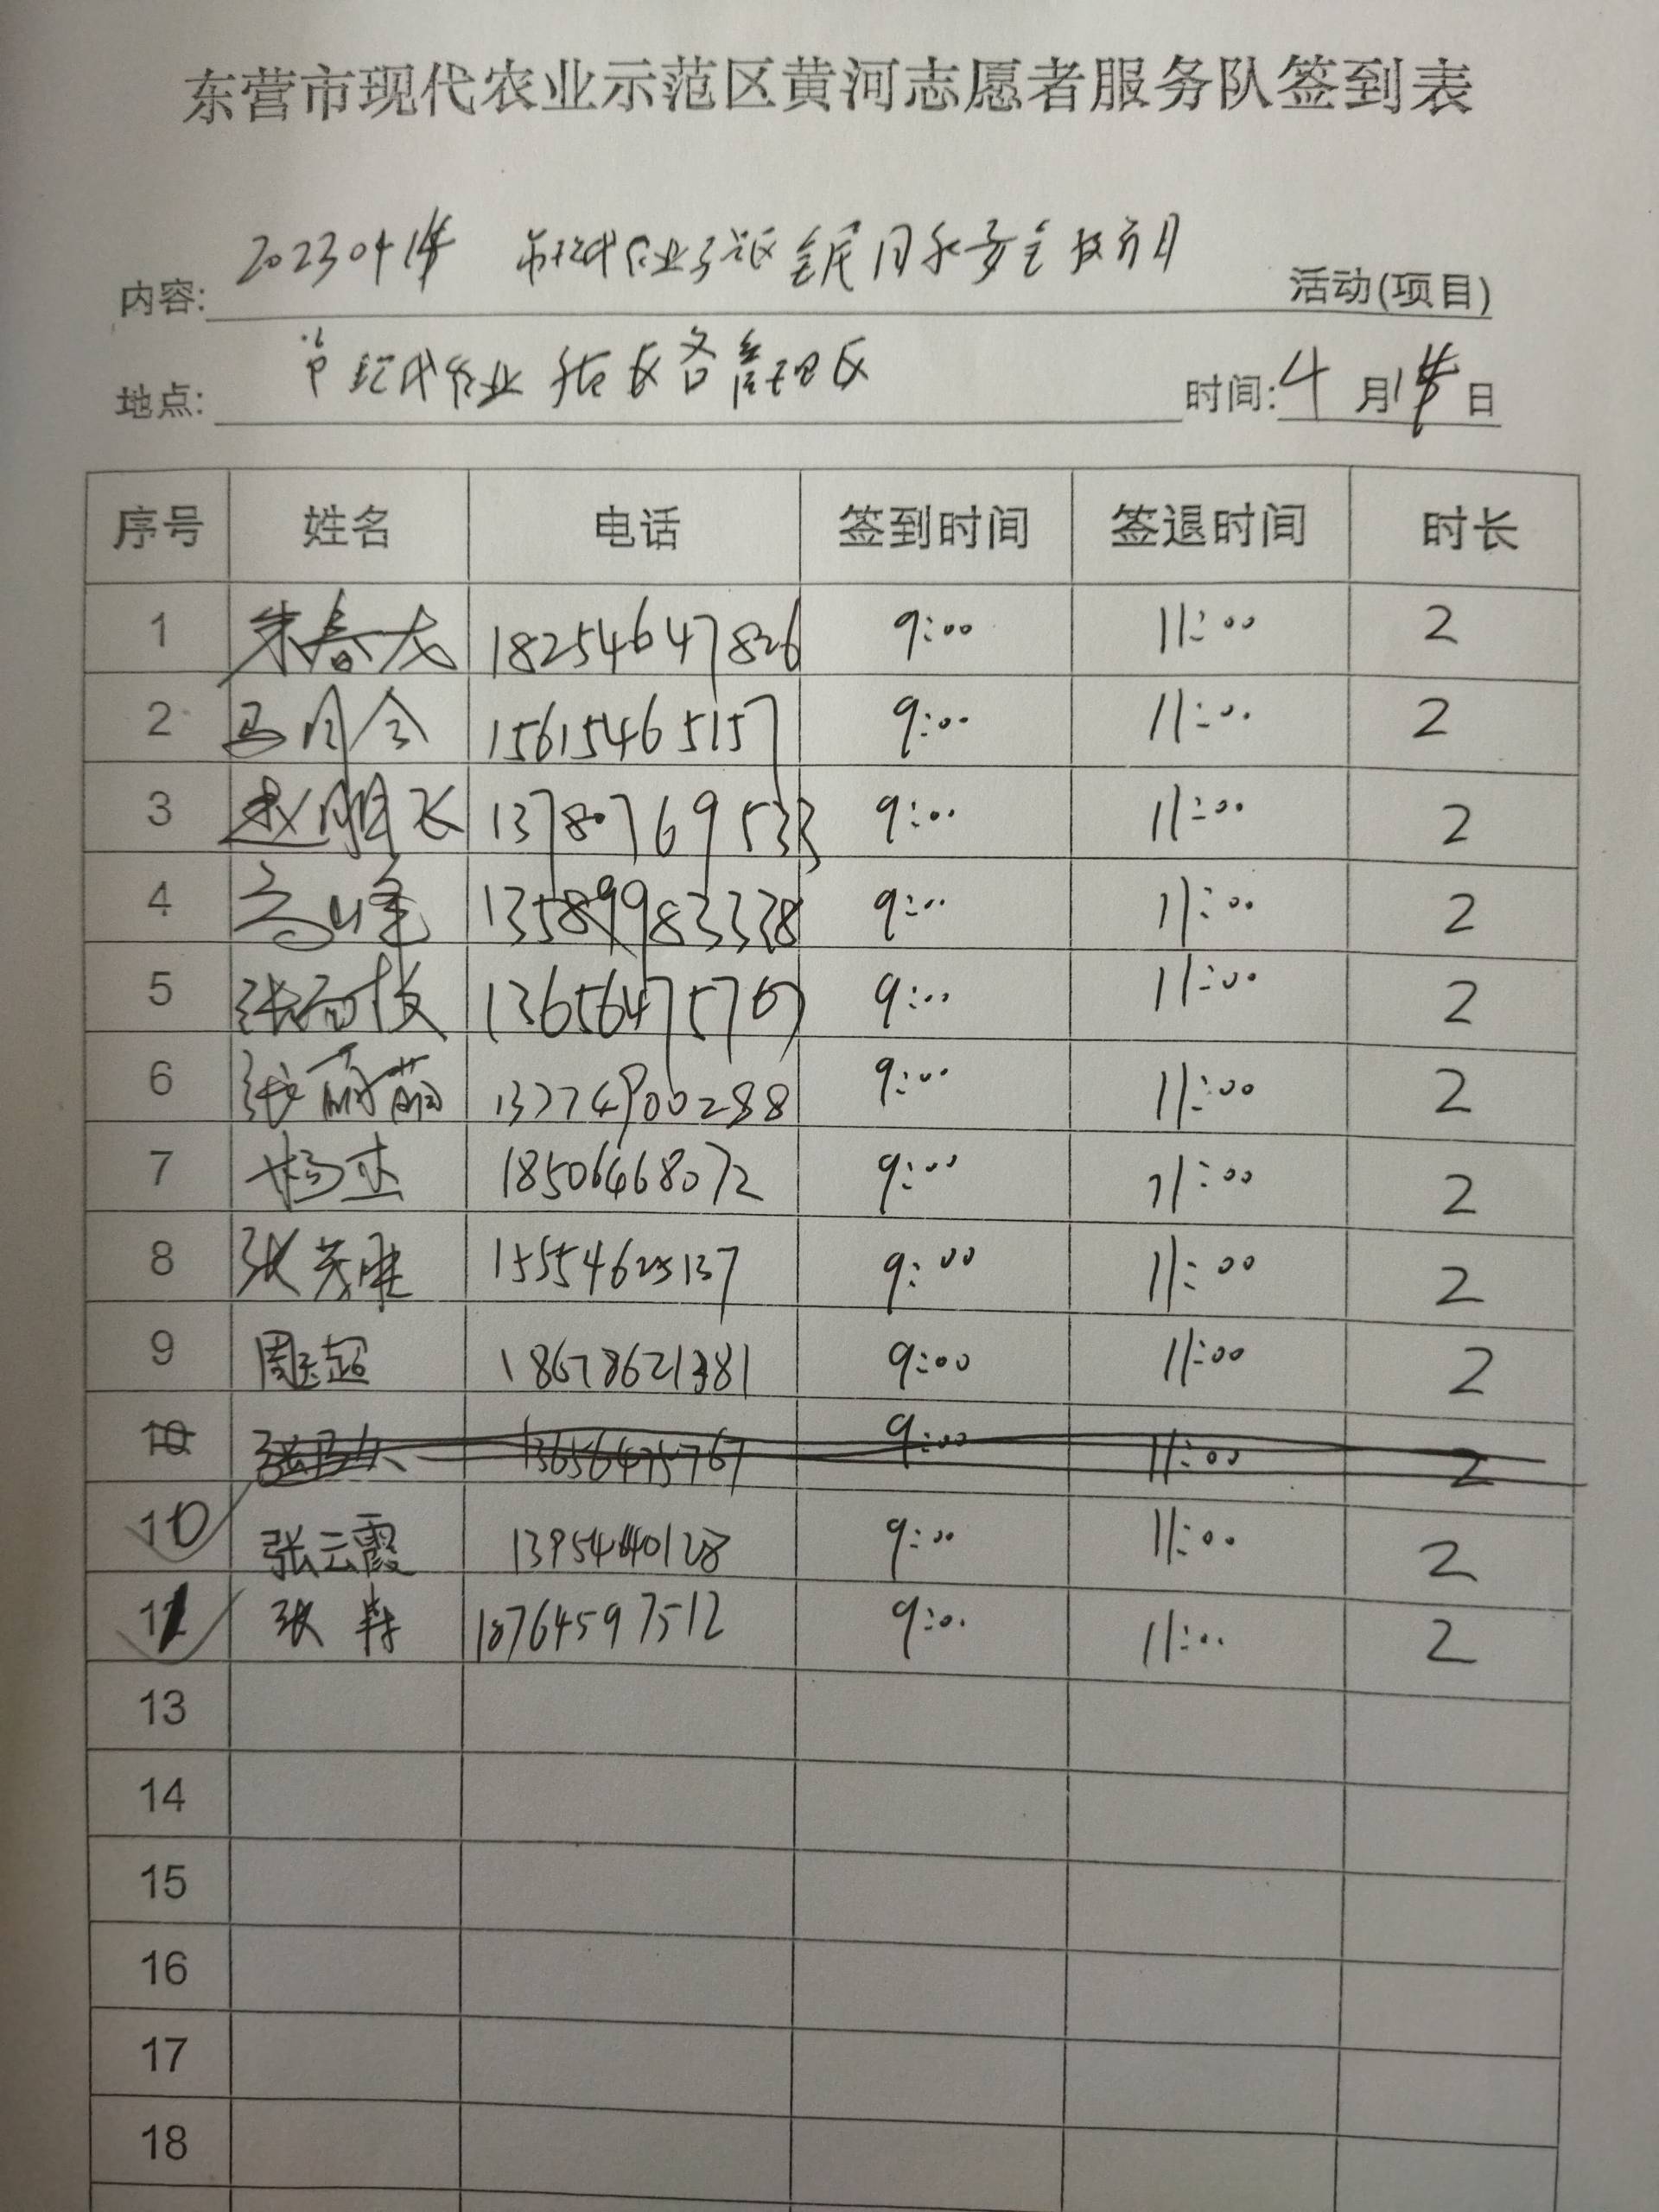 东营市现代农业示范区黄河志愿者服务队签到表
内容: 202304 市现代农业示范区 居 安全 活动(项目)
地点: 市现代农业示范区各管理区 时间: 4 月 日
序号 姓名 电话 签到时间 签退时间 时长
1 朱春龙 18254647826 9:00 11:00 2
2 15615465157 9:00 11:00 2
3 赵 飞 13780769533 9:00 11:00 2
4 高峰 13589983338 9:00 11:00 2
5 张 枝 13656475767 9:00 11:00 2
6 张丽茹 9:00 11:00 2
7 杨杰 18506468072 9:00 11:00 2
8 张美胜 15554625137 9:00 11:00 2
9 周玉超 18678621381 9:00 11:00 2
10 13656475767 9:00 11:00 2
10 张云霞 9:00 11:00 2
11 张 18764597512 9:00 11:00 2
13
14
15
16
17
18